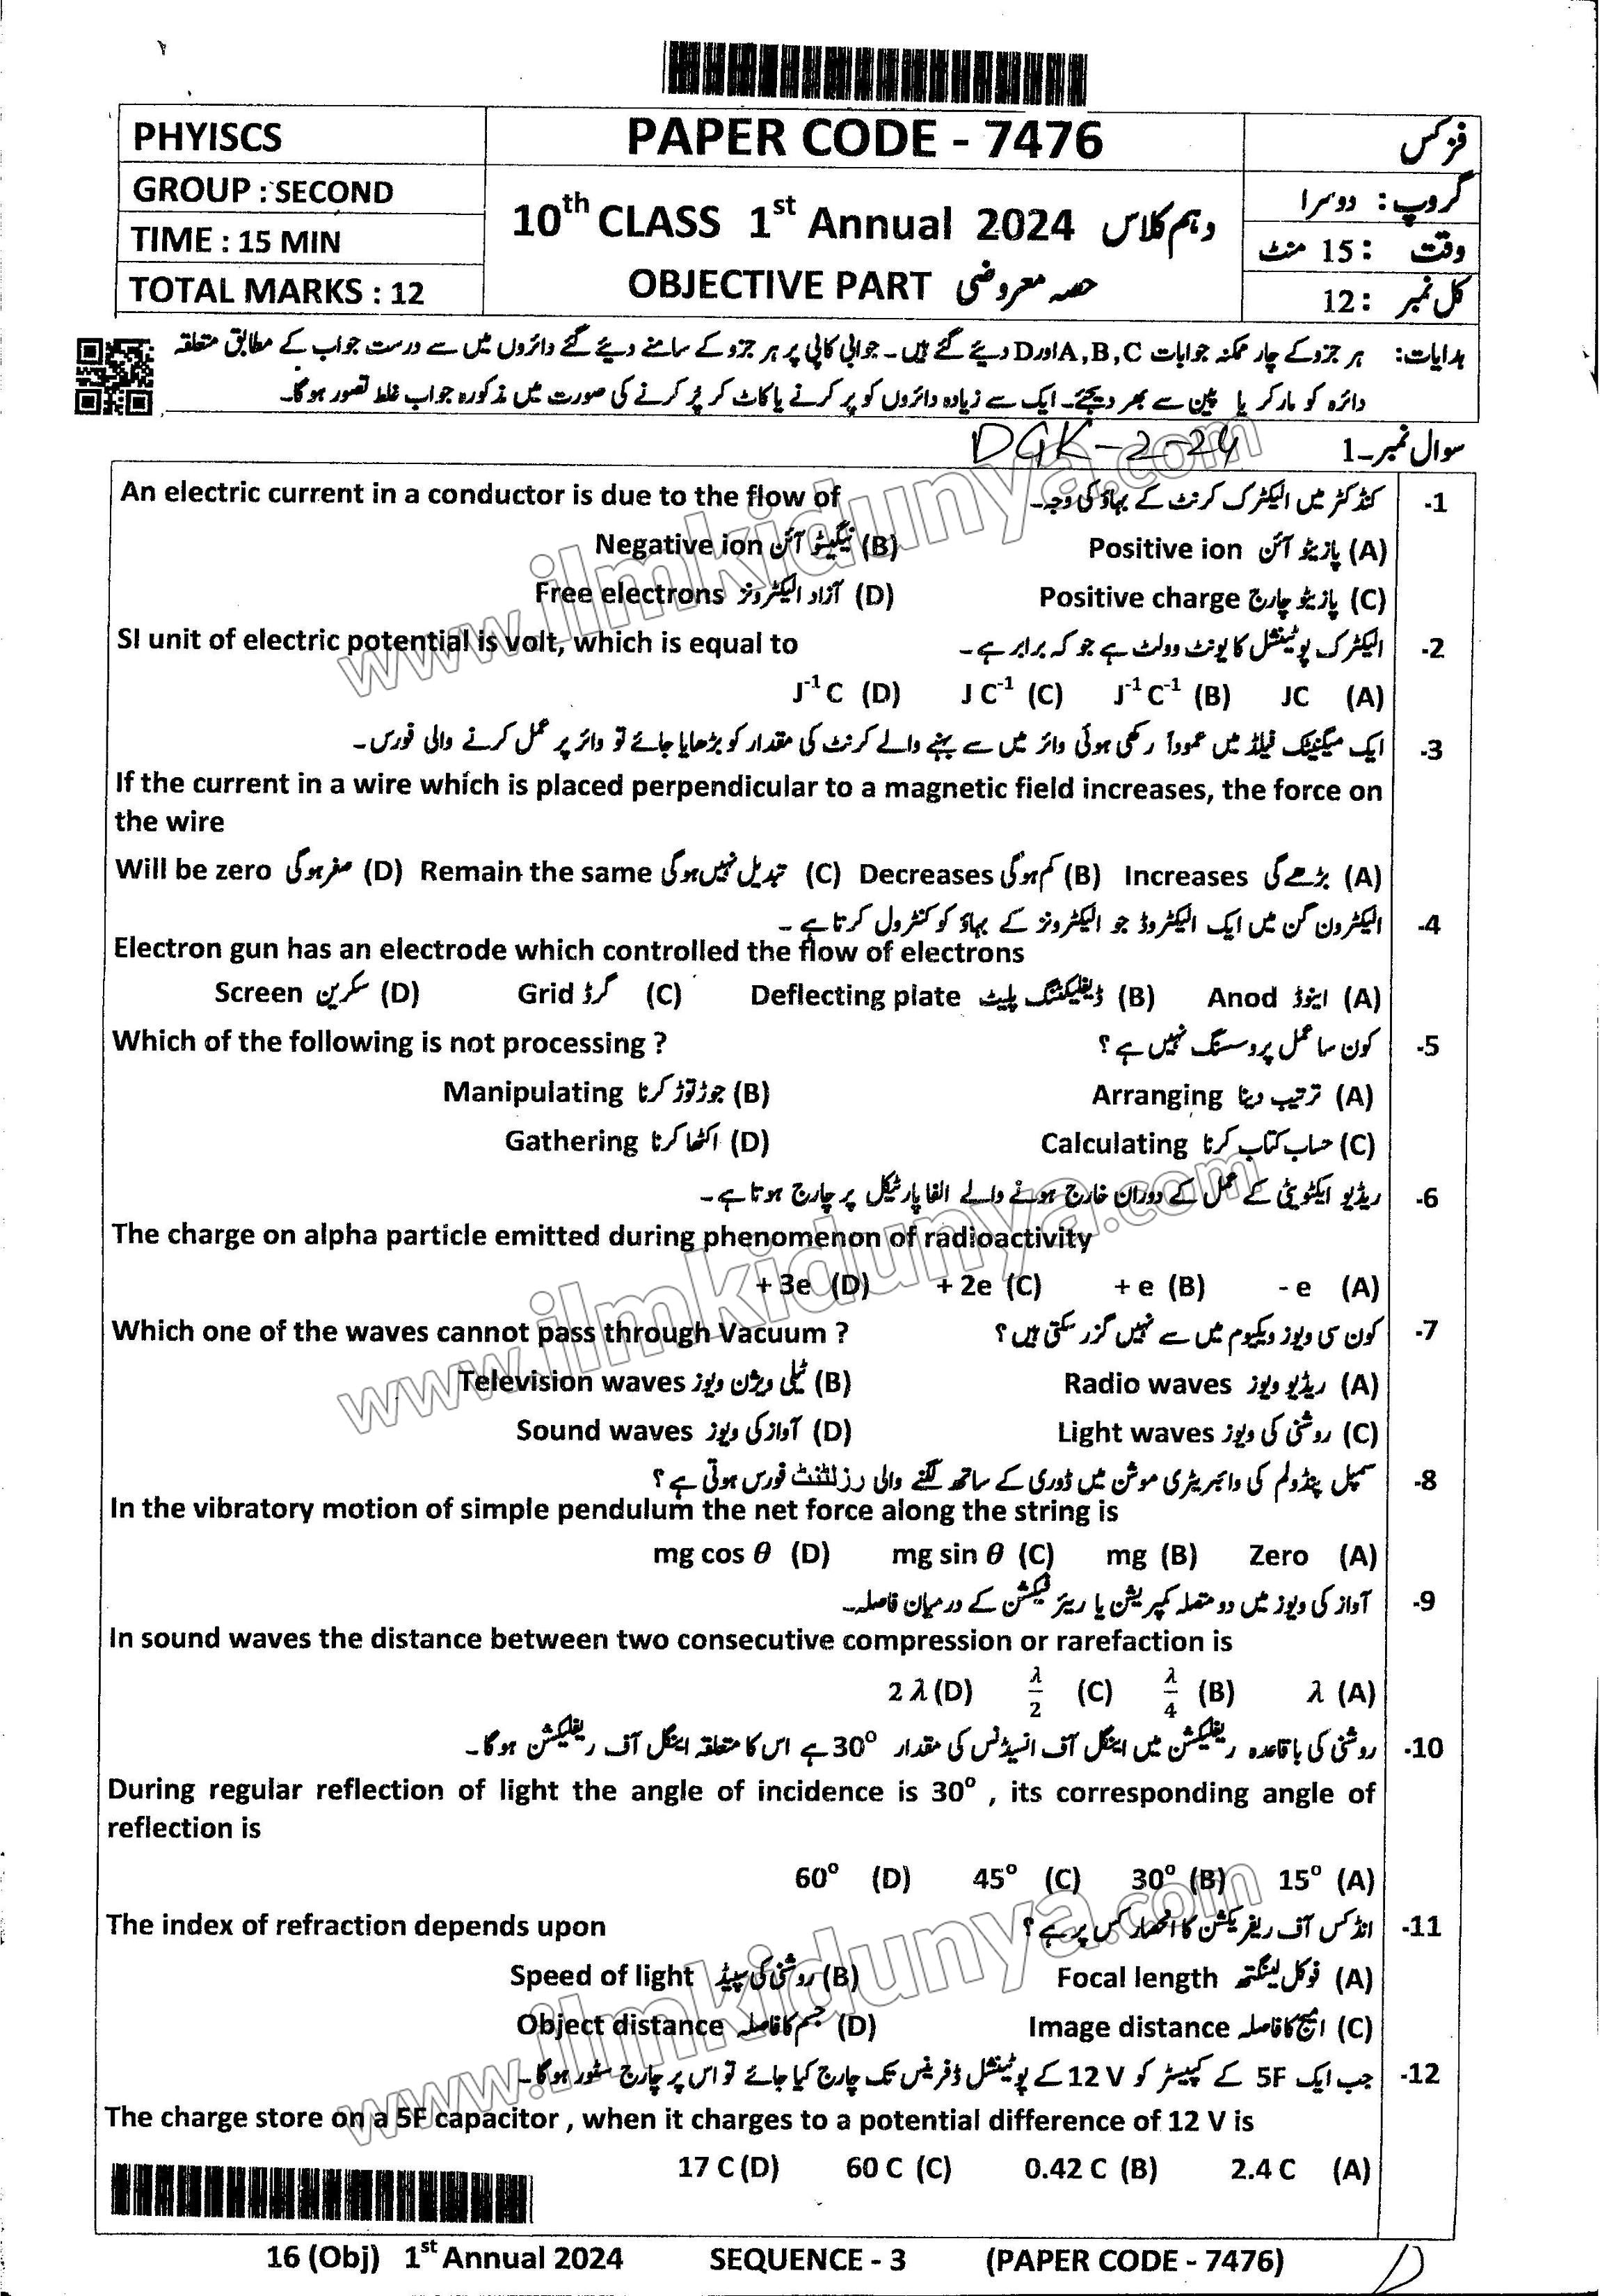 PHYISCS
PAPER CODE - 7476
فزکس
GROUP : SECOND
گروپ : دوسرا
10th CLASS 1st Annual 2024 دہم کلاس
TIME : 15 MIN
وقت : 15 منٹ
OBJECTIVE PART حصہ معروضی
TOTAL MARKS : 12
کل نمبر : 12
ہدایات: ہر جزو کے چار ممکنہ جوابات A,B,C اور D دیئے گئے ہیں۔ جوابی کاپی پر ہر جزو کے سامنے دیئے گئے دائروں میں سے درست جواب کے مطابق متعلقہ
دائرہ کو مارکر یا پین سے بھر دیجئے۔ ایک سے زیادہ دائروں کو پر کرنے یا کاٹ کر پُر کرنے کی صورت میں مذکورہ جواب غلط تصور ہوگا۔
DGK-2-24
سوال نمبر۔1
An electric current in a conductor is due to the flow of کنڈکٹر میں الیکٹرک کرنٹ کے بہاؤ کی وجہ۔ -1
Negative ion نیگیٹو آئن (B) Positive ion پازیٹو آئن (A)
Free electrons آزاد الیکٹرونز (D) Positive charge پازیٹو چارج (C)
SI unit of electric potential is volt, which is equal to الیکٹرک پوٹینشل کا یونٹ وولٹ ہے جو کہ برابر ہے۔ -2
J⁻¹ C (D) J C⁻¹ (C) J⁻¹ C⁻¹ (B) JC (A)
ایک میگنیٹک فیلڈ میں عموداً رکھی ہوئی وائر میں سے بہنے والے کرنٹ کی مقدار کو بڑھایا جائے تو وائر پر عمل کرنے والی فورس۔ -3
If the current in a wire which is placed perpendicular to a magnetic field increases, the force on
the wire
Will be zero صفر ہوگی (D) Remain the same تبدیل نہیں ہوگی (C) Decreases کم ہوگی (B) Increases بڑھے گی (A)
الیکٹرون گن میں ایک الیکٹروڈ جو الیکٹرونز کے بہاؤ کو کنٹرول کرتا ہے۔ -4
Electron gun has an electrode which controlled the flow of electrons
Screen سکرین (D) Grid گرڈ (C) Deflecting plate ڈیفلیکٹنگ پلیٹ (B) Anod اینوڈ (A)
Which of the following is not processing ? کون سا عمل پروسسنگ نہیں ہے ؟ -5
Manipulating جوڑ توڑ کرنا (B) Arranging ترتیب دینا (A)
Gathering اکٹھا کرنا (D) Calculating حساب کتاب کرنا (C)
ریڈیو ایکٹویٹی کے عمل کے دوران خارج ہونے والے الفا پارٹیکل پر چارج ہوتا ہے۔ -6
The charge on alpha particle emitted during phenomenon of radioactivity
+ 3e (D) + 2e (C) + e (B) - e (A)
Which one of the waves cannot pass through Vacuum ? کون سی ویوز ویکیوم میں سے نہیں گزر سکتی ہیں ؟ -7
Television waves ٹیلی ویژن ویوز (B) Radio waves ریڈیو ویوز (A)
Sound waves آواز کی ویوز (D) Light waves روشنی کی ویوز (C)
سمپل پنڈولم کی وائبریٹری موشن میں ڈوری کے ساتھ لگنے والی رزلٹنٹ فورس ہوتی ہے ؟ -8
In the vibratory motion of simple pendulum the net force along the string is
mg cos θ (D) mg sin θ (C) mg (B) Zero (A)
آواز کی ویوز میں دو متصلہ کمپریشن یا ریئر فیکشن کے درمیان فاصلہ۔ -9
In sound waves the distance between two consecutive compression or rarefaction is
2 λ (D) λ/2 (C) λ/4 (B) λ (A)
روشنی کی باقاعدہ ریفلیکشن میں اینگل آف انسیڈنس کی مقدار 30° ہے اس کا متعلقہ اینگل آف ریفلیکشن ہوگا۔ -10
During regular reflection of light the angle of incidence is 30° , its corresponding angle of
reflection is
60° (D) 45° (C) 30° (B) 15° (A)
The index of refraction depends upon انڈکس آف ریفریکشن کا انحصار کس پر ہے ؟ -11
Speed of light روشنی کی سپیڈ (B) Focal length فوکل لینگتھ (A)
Object distance جسم کا فاصلہ (D) Image distance امیج کا فاصلہ (C)
جب ایک 5F کے کپیسٹر کو 12 V کے پوٹینشل ڈفرینس تک چارج کیا جائے تو اس پر چارج سٹور ہوگا۔ -12
The charge store on a 5F capacitor , when it charges to a potential difference of 12 V is
17 C (D) 60 C (C) 0.42 C (B) 2.4 C (A)
16 (Obj) 1st Annual 2024 SEQUENCE - 3 (PAPER CODE - 7476)
www.ilmkidunya.com
www.ilmkidunya.com
www.ilmkidunya.com